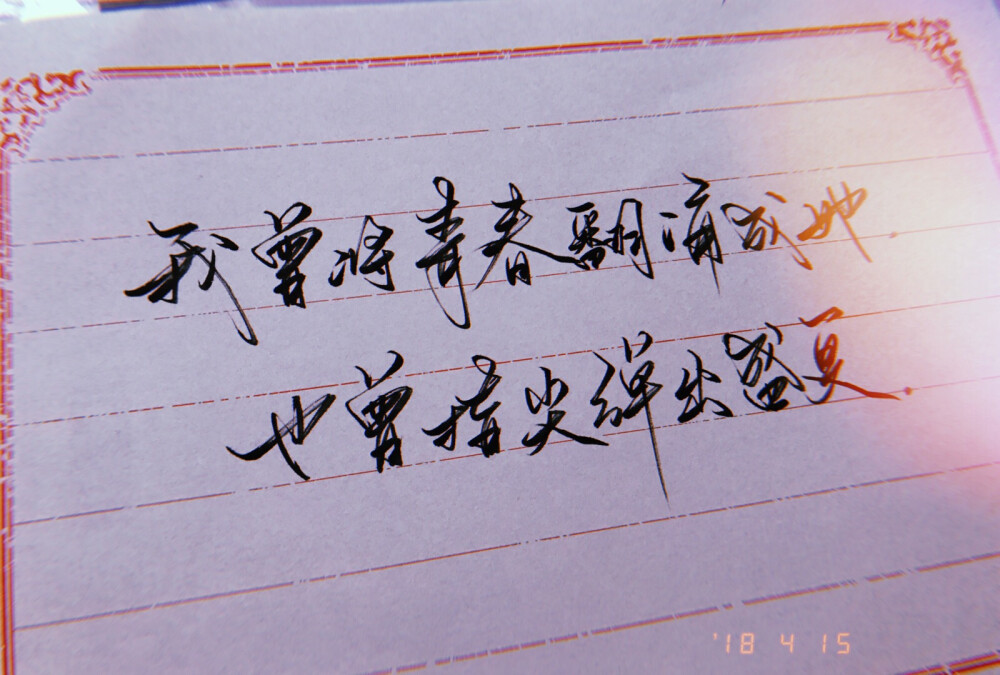 我曾将青春翻涌成她.
也曾指尖弹出盛夏.
'18 4 15